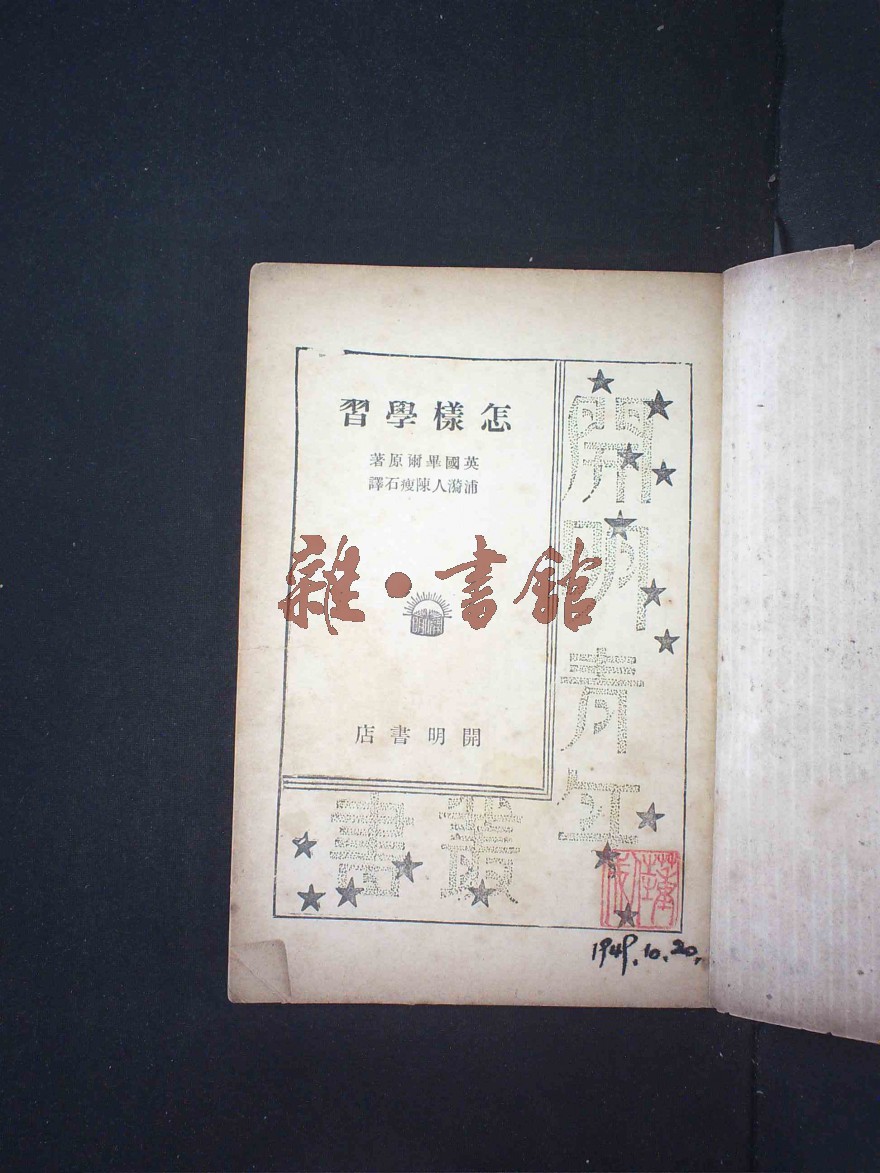 怎樣學習
英國畢爾原著
浦漪人陳瘦石譯
雜·書館
開明
開明書店
開明青年
叢書
1949.10.20.